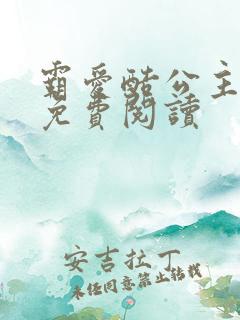 霸爱酷公主
免費閱讀
安吉拉丁
未经同意禁止转载